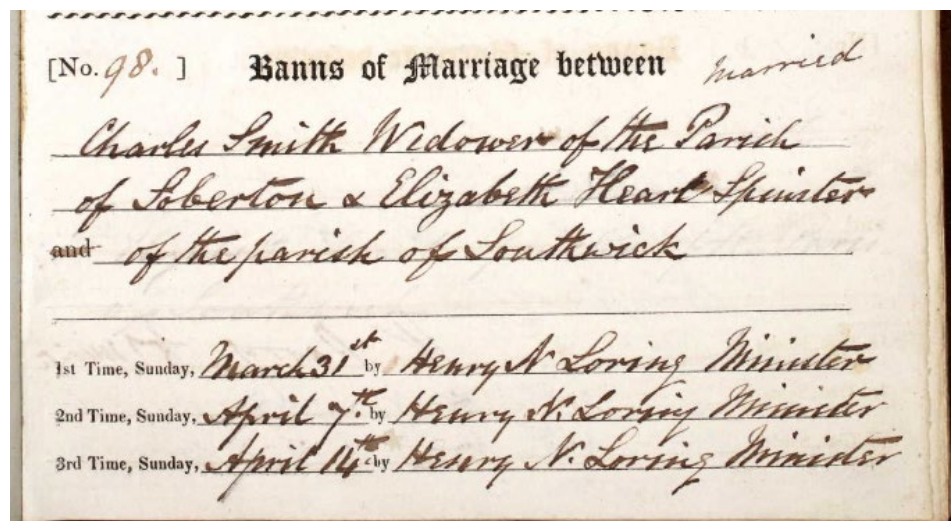 [No. 98. ] Banns of Marriage between married
Charles Smith Widower of the Parish
of Soberton & Elizabeth Heart Spinster
and of the parish of Southwick
1st Time, Sunday, March 31st by Henry N Loring Minister
2nd Time, Sunday, April 7th. by Henry N. Loring Minister
3rd Time, Sunday, April 14th by Henry N. Loring Minister